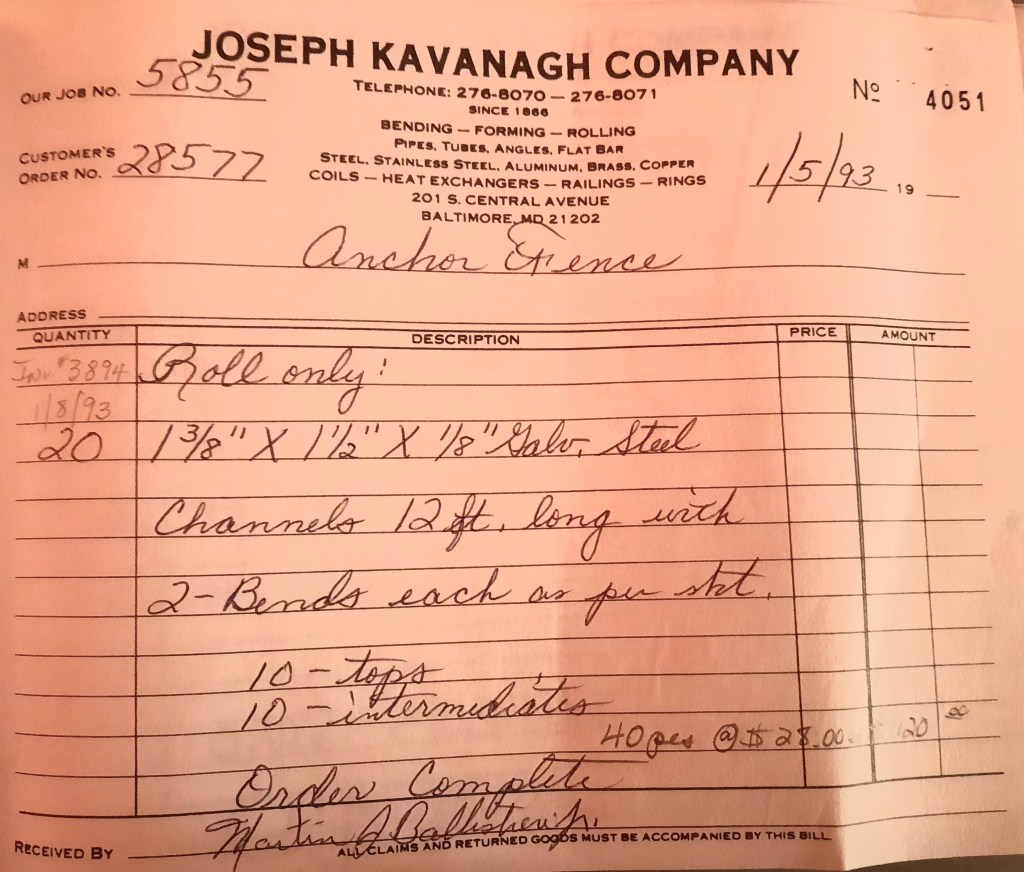 JOSEPH KAVANAGH COMPANY
OUR JOB NO. 5855
TELEPHONE: 276-8070 — 276-8071
Nº 4051
SINCE 1866
BENDING — FORMING — ROLLING
PIPES, TUBES, ANGLES, FLAT BAR
CUSTOMER'S
ORDER NO. 28577
STEEL, STAINLESS STEEL, ALUMINUM, BRASS, COPPER
COILS — HEAT EXCHANGERS — RAILINGS — RINGS
1/5/93 19
201 S. CENTRAL AVENUE
BALTIMORE, MD 21202
M Anchor Fence
ADDRESS
QUANTITY DESCRIPTION PRICE AMOUNT
Inv. #3894 Roll only:
1/8/93
20 1 3/8" X 1 1/2" X 1/8" Galv. Steel
Channels 12 ft. long with
2-Bends each as per skt.
10 - tops
10 - intermediates
40 pcs @ $28.00 120 00
Order Complete
RECEIVED BY Martin J. Ballistreri Jr.
ALL CLAIMS AND RETURNED GOODS MUST BE ACCOMPANIED BY THIS BILL